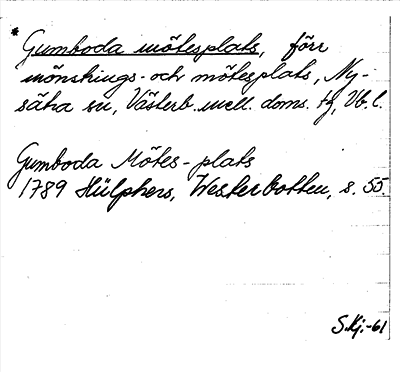 * Gumboda mötesplats, förr
mönstrings- och mötesplats, Ny-
sätra sn, Västerb. mell. doms. tg, Vb. l.
Gumboda Mötes-plats
1789 Hülphers, Westerbotten, s. 55.
S.Kj.-61